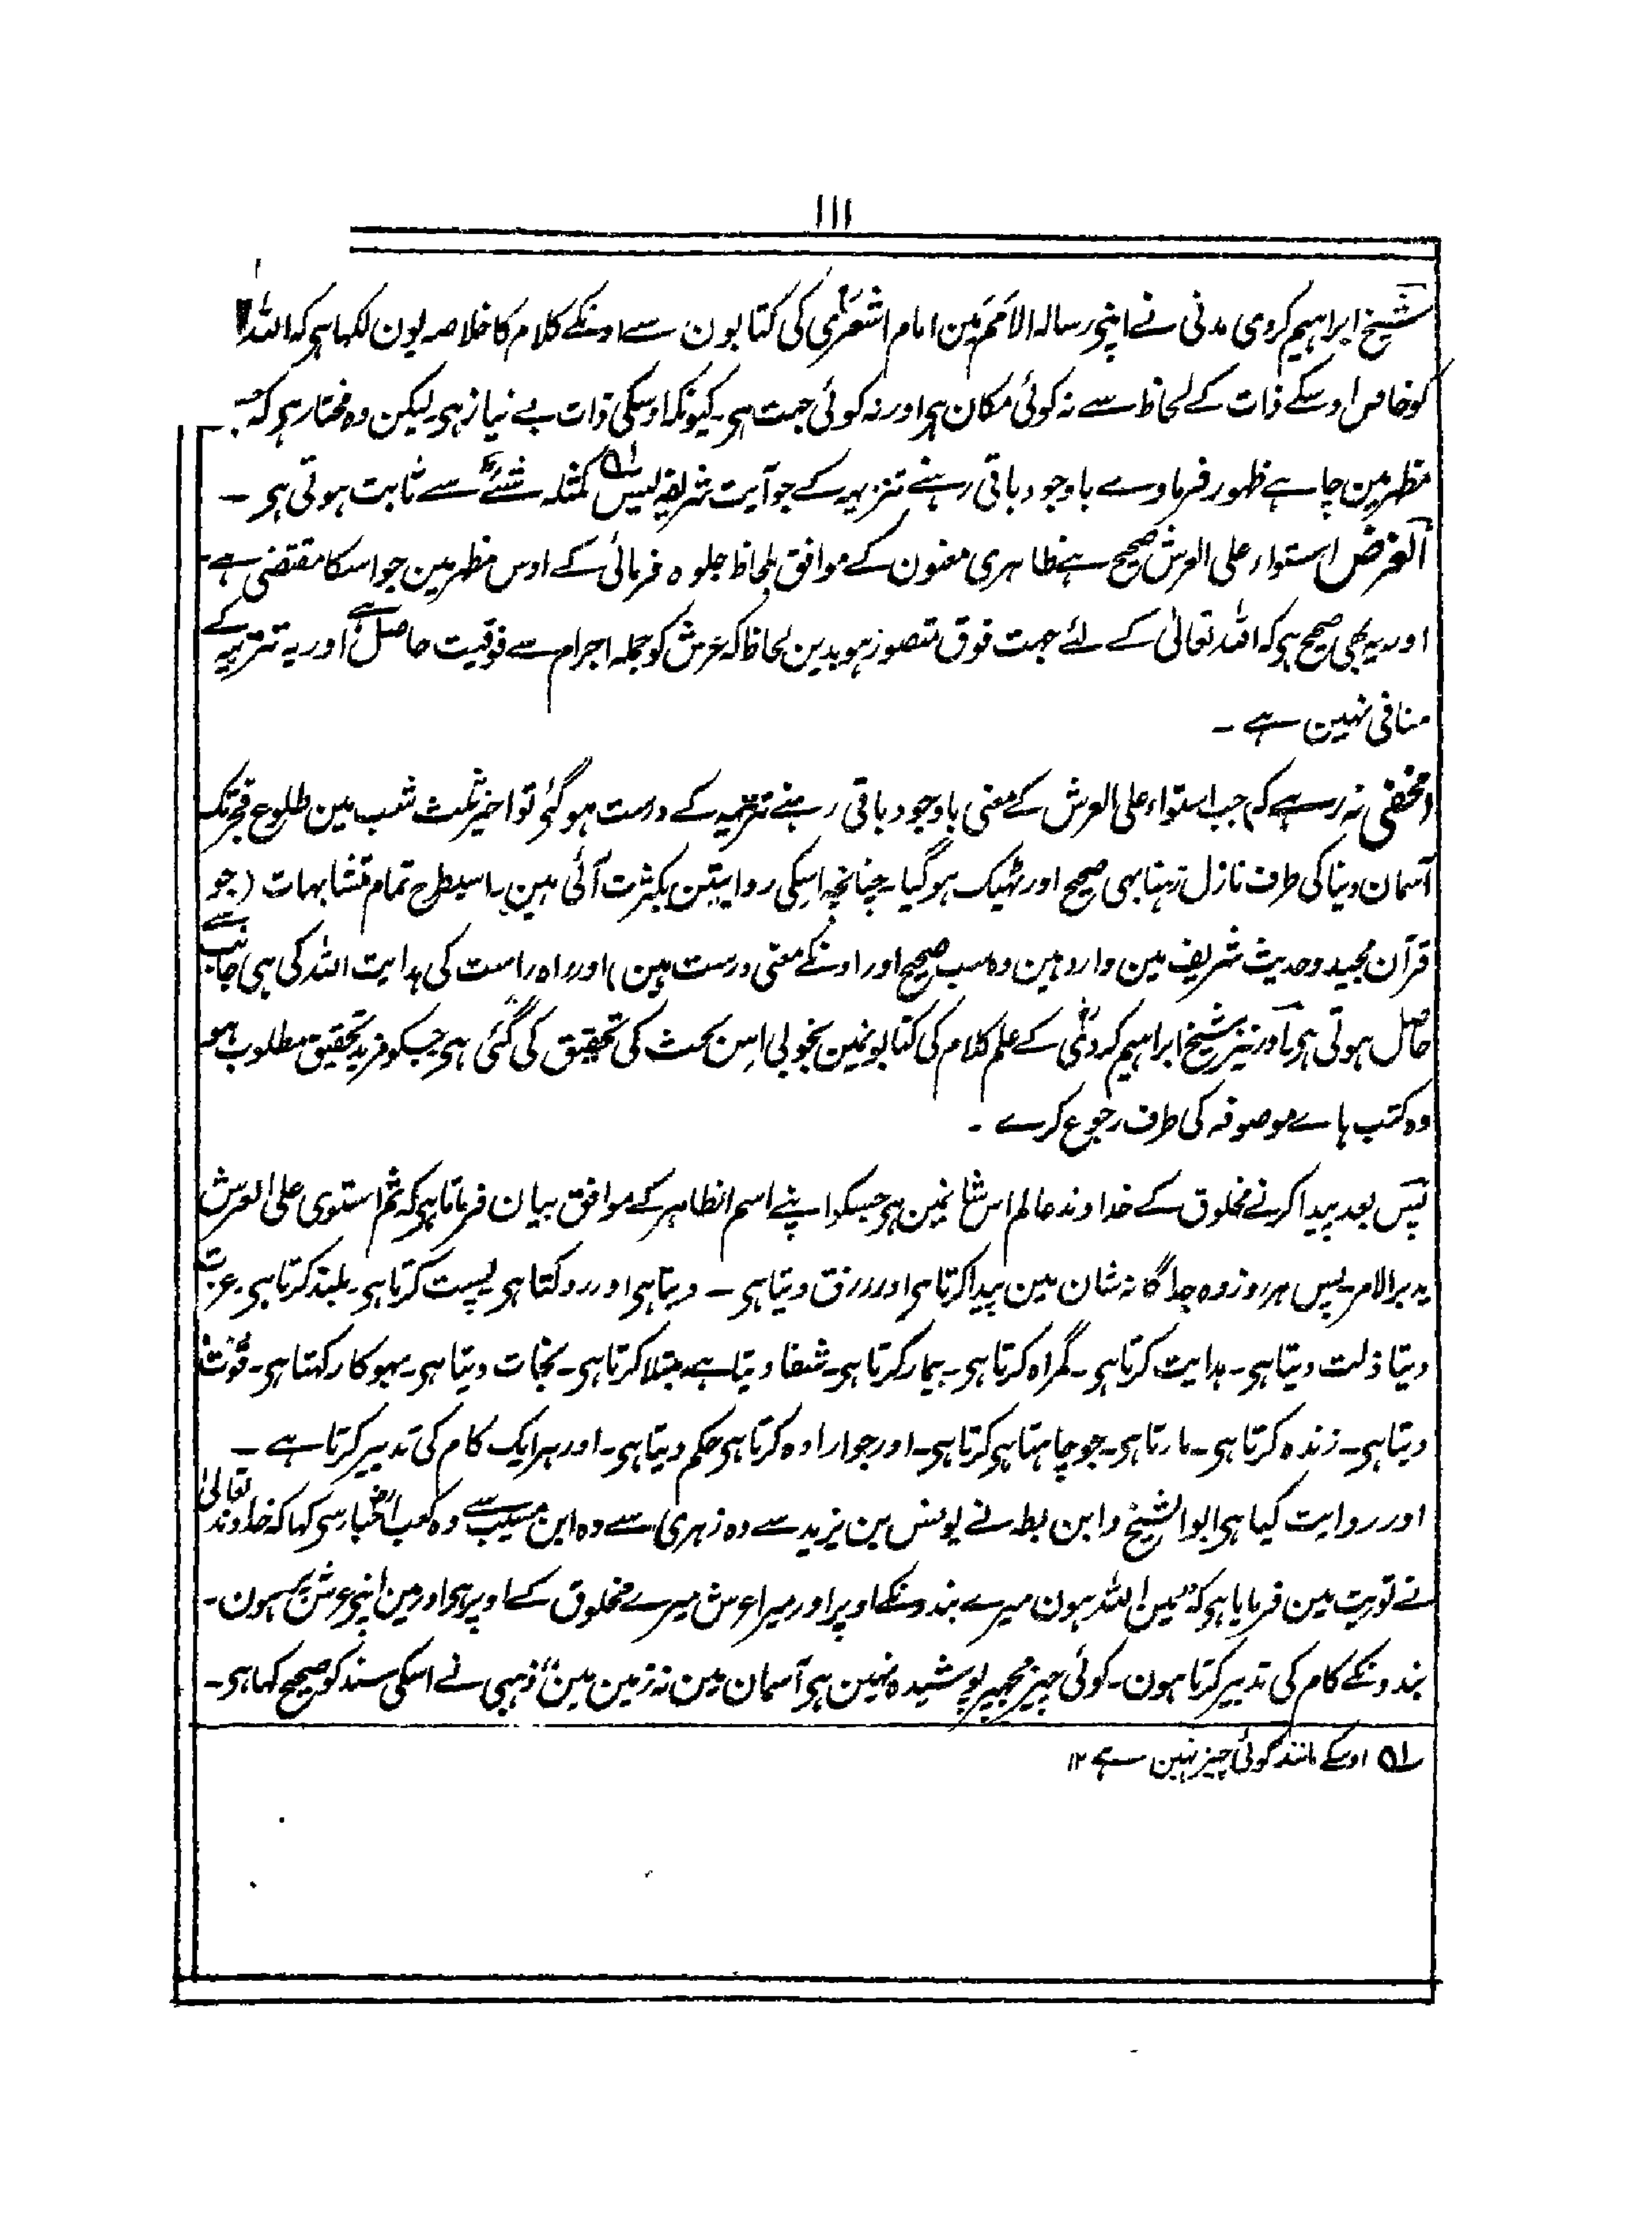 ۱۱۱
شیخ ابراہیم کردی مدنی نے اپنی رسالہ الامم مین امام اشعری کی کتابون سے اونکے کلام کا خلاصہ یون لکہا ہی کہ اللہ
کو خاص اوسکے ذات کے لحاظ سے نہ کوئی مکان ہی اور نہ کوئی جہت ہی۔ کیونکہ اوسکی ذات بے نیاز ہی لیکن وہ مختار ہی کہ جس
مظہر مین چاہے ظہور فرماوے باوجود باقی رہنے تنزیہہ کے جو آیت شریفہ لیس کمثلہ شئے سے ثابت ہوتی ہی ۔
الغرض استواء علی العرش صحیح ہے ظاہری معنون کے موافق بلحاظ جلوہ فرمائی کے اوس مظہر مین جو اسکا مقتضی ہے۔
اور یہ بھی صحیح ہی کہ اللہ تعالیٰ کے لئے جہت فوق متصور ہو بدین لحاظ کہ عرش کو جملہ اجرام سے فوقیت حاصل ہے اور یہ تنزیہہ کے
منافی نہین ہے ۔
(مخفی نہ رہے کہ) جب استواء علی العرش کے معنی باوجود باقی رہنے تنزیہہ کے درست ہو گئی تو اخیر ثلث شب مین طلوع فجر تک
آسمان دنیا کی طرف نازل رہنا بہی صحیح اور ٹہیک ہو گیا۔ چنانچہ اسکی روایتین بکثرت آئی ہین۔ اسیطرح تمام متشابہات (جو
قرآن مجید و حدیث شریف مین وارد ہین وہ سب صحیح اور اونکے معنی درست ہین) اور راہ راست کی ہدایت اللہ کی ہی جانب سے
حاصل ہوتی ہی۔ اور نیز شیخ ابراہیم کردی کے علم کلام کی کتابونمین بخوبی اس بحث کی تحقیق کی گئی ہی جسکو مزید تحقیق مطلوب ہو
وہ کتب ہاے موصوفہ کی طرف رجوع کرے ۔
پس بعد پیدا کرنے مخلوق کے خداوند عالم اس شانمین ہی جسکو اپنے اسم الظاہر کے موافق بیان فرماتا ہی کہ ثم استوی علی العرش
یدبر الامر۔ پس ہر روز وہ جداگانہ شان مین پیدا کرتا ہی اور رزق دیتا ہی ۔ دیتا ہی اور روکتا ہی۔ پست کرتا ہی۔ بلند کرتا ہی۔ عزت
دیتا ذلت دیتا ہی۔ ہدایت کرتا ہی۔ گمراہ کرتا ہی۔ بیمار کرتا ہی۔ شفا دیتا ہے۔ مبتلا کرتا ہی۔ نجات دیتا ہی۔ بہوکا رکہتا ہی۔ قوت
دیتا ہی۔ زندہ کرتا ہی۔ مارتا ہی۔ جو چاہتا ہی کرتا ہی۔ اور جو ارادہ کرتا ہی حکم دیتا ہی۔ اور ہر ایک کام کی تدبیر کرتا ہے ۔
اور روایت کیا ہی ابوالشیخ و ابن بطہ نے یونس بن یزید سے وہ زہری سے وہ ابن مسیب سے وہ کعب احبار سی کہا کہ خداوند تعالیٰ
نے توریت مین فرمایا ہی کہ "مین اللہ ہون میرے بندونکے اوپر اور میرا عرش میرے مخلوق کے اوپر ہی اور مین اپنی عرش پر ہون۔
بندونکے کام کی تدبیر کرتا ہون۔ کوئی چیز مجہپر پوشیدہ نہین ہی آسمان مین نہ زمین مین" ذہبی نے اسکی سند کو صحیح کہا ہی۔
لہ اوسکے مانند کوئی چیز نہین ہے ۱۲